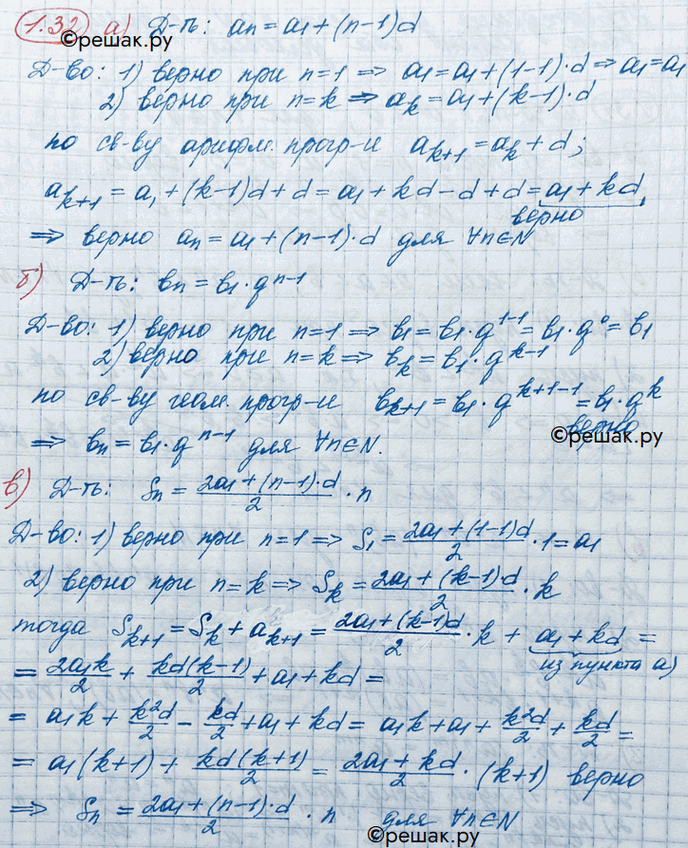 1.32 а) Д-ть: aₙ = a₁ + (n-1)d
©решак.ру
Д-во: 1) верно при n=1 ⇒ a₁ = a₁ + (1-1)·d ⇒ a₁ = a₁
2) верно при n=k ⇒ aₖ = a₁ + (k-1)·d
по св-ву арифм. прогр-и aₖ₊₁ = aₖ + d;
aₖ₊₁ = a₁ + (k-1)d + d = a₁ + kd - d + d = a₁ + kd,
верно
⇒ верно aₙ = a₁ + (n-1)·d для ∀n∈N
б) Д-ть: bₙ = b₁·qⁿ⁻¹
Д-во: 1) верно при n=1 ⇒ b₁ = b₁·q¹⁻¹ = b₁·q⁰ = b₁
2) верно при n=k ⇒ bₖ = b₁·qᵏ⁻¹
по св-ву геом. прогр-и bₖ₊₁ = b₁·qᵏ⁺¹⁻¹ = b₁·qᵏ
верно
©решак.ру
⇒ bₙ = b₁·qⁿ⁻¹ для ∀n∈N.
в) Д-ть: Sₙ = (2a₁ + (n-1)·d)/2 · n
Д-во: 1) верно при n=1 ⇒ S₁ = (2a₁ + (1-1)d)/2 · 1 = a₁
2) верно при n=k ⇒ Sₖ = (2a₁ + (k-1)·d)/2 · k
тогда Sₖ₊₁ = Sₖ + aₖ₊₁ = (2a₁ + (k-1)d)/2 · k + a₁ + kd =
из пункта а)
= 2a₁k/2 + kd(k-1)/2 + a₁ + kd =
= a₁k + k²d/2 - kd/2 + a₁ + kd = a₁k + a₁ + k²d/2 + kd/2 =
= a₁(k+1) + kd(k+1)/2 = (2a₁ + kd)/2 · (k+1) верно
⇒ Sₙ = (2a₁ + (n-1)·d)/2 · n для ∀n∈N
©решак.ру